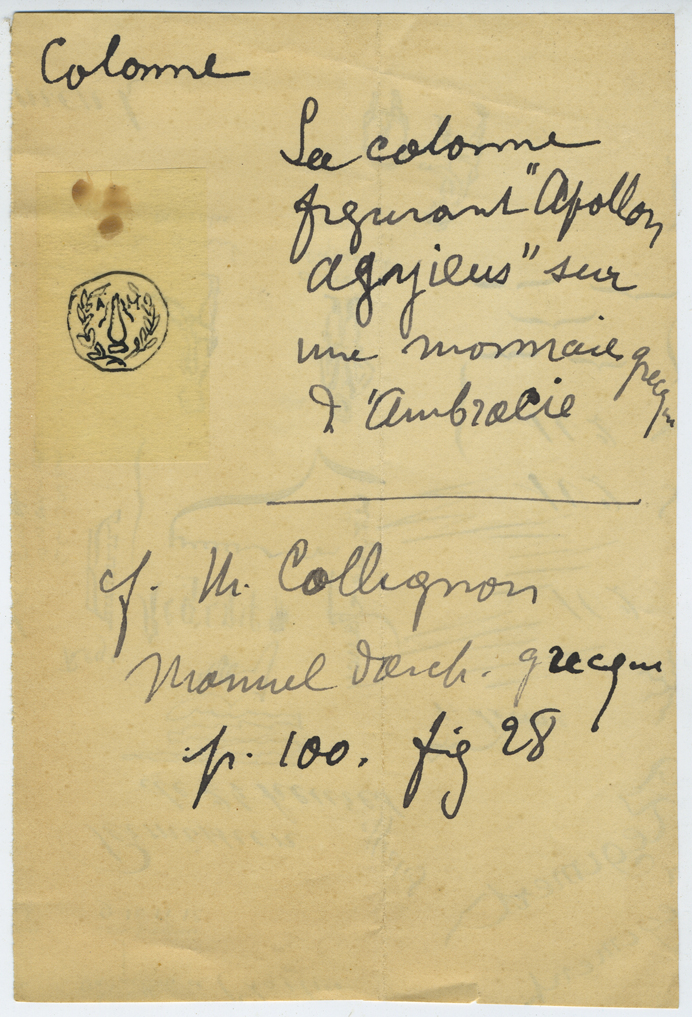 Colonne
La colonne
figurant "Apollon
agyieus" sur
une monnaie grecque
d'Ambracie
cf. M. Collignon
Manuel d'arch. grecque
p. 100. fig 28